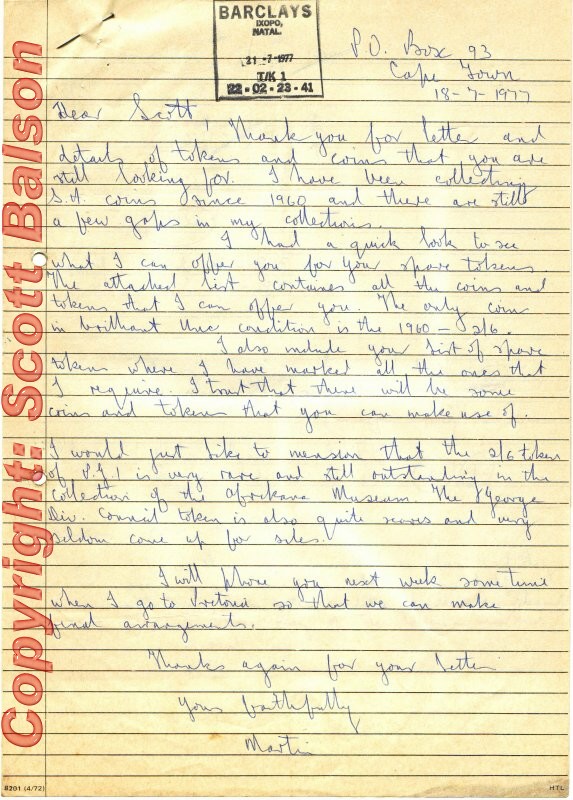 BARCLAYS
IXOPO,
NATAL.
21-7-1977
T/K 1
22-02-23-41
P.O. Box 93
Cape Town
18-7-1977
Dear Scott,
Thank you for letter and
details of tokens and coins that you are
still looking for. I have been collecting
S.A. coins since 1960 and there are still
a few gaps in my collections.
I had a quick look to see
what I can offer you for your spare tokens.
The attached list containes all the coins and
tokens that I can offer you. The only coin
in brilliant Unc condition is the 1960 - 2/6.
I also include your list of spare
tokens where I have marked all the ones that
I require. I trust that there will be some
coins and tokens that you can make use of.
I would just like to mension that the 2/6 token
of is very rare and still outstanding in the
collection of the Africana Museum. The George
Div. Council token is also quite scares and very
seldom come up for sales.
I will phone you next week some time
when I go to Pretoria so that we can make
final arrangements.
Thanks again for your letter
Yours faithfully
Martin
8201 (4/72)
HTL
Copyright: Scott Balson